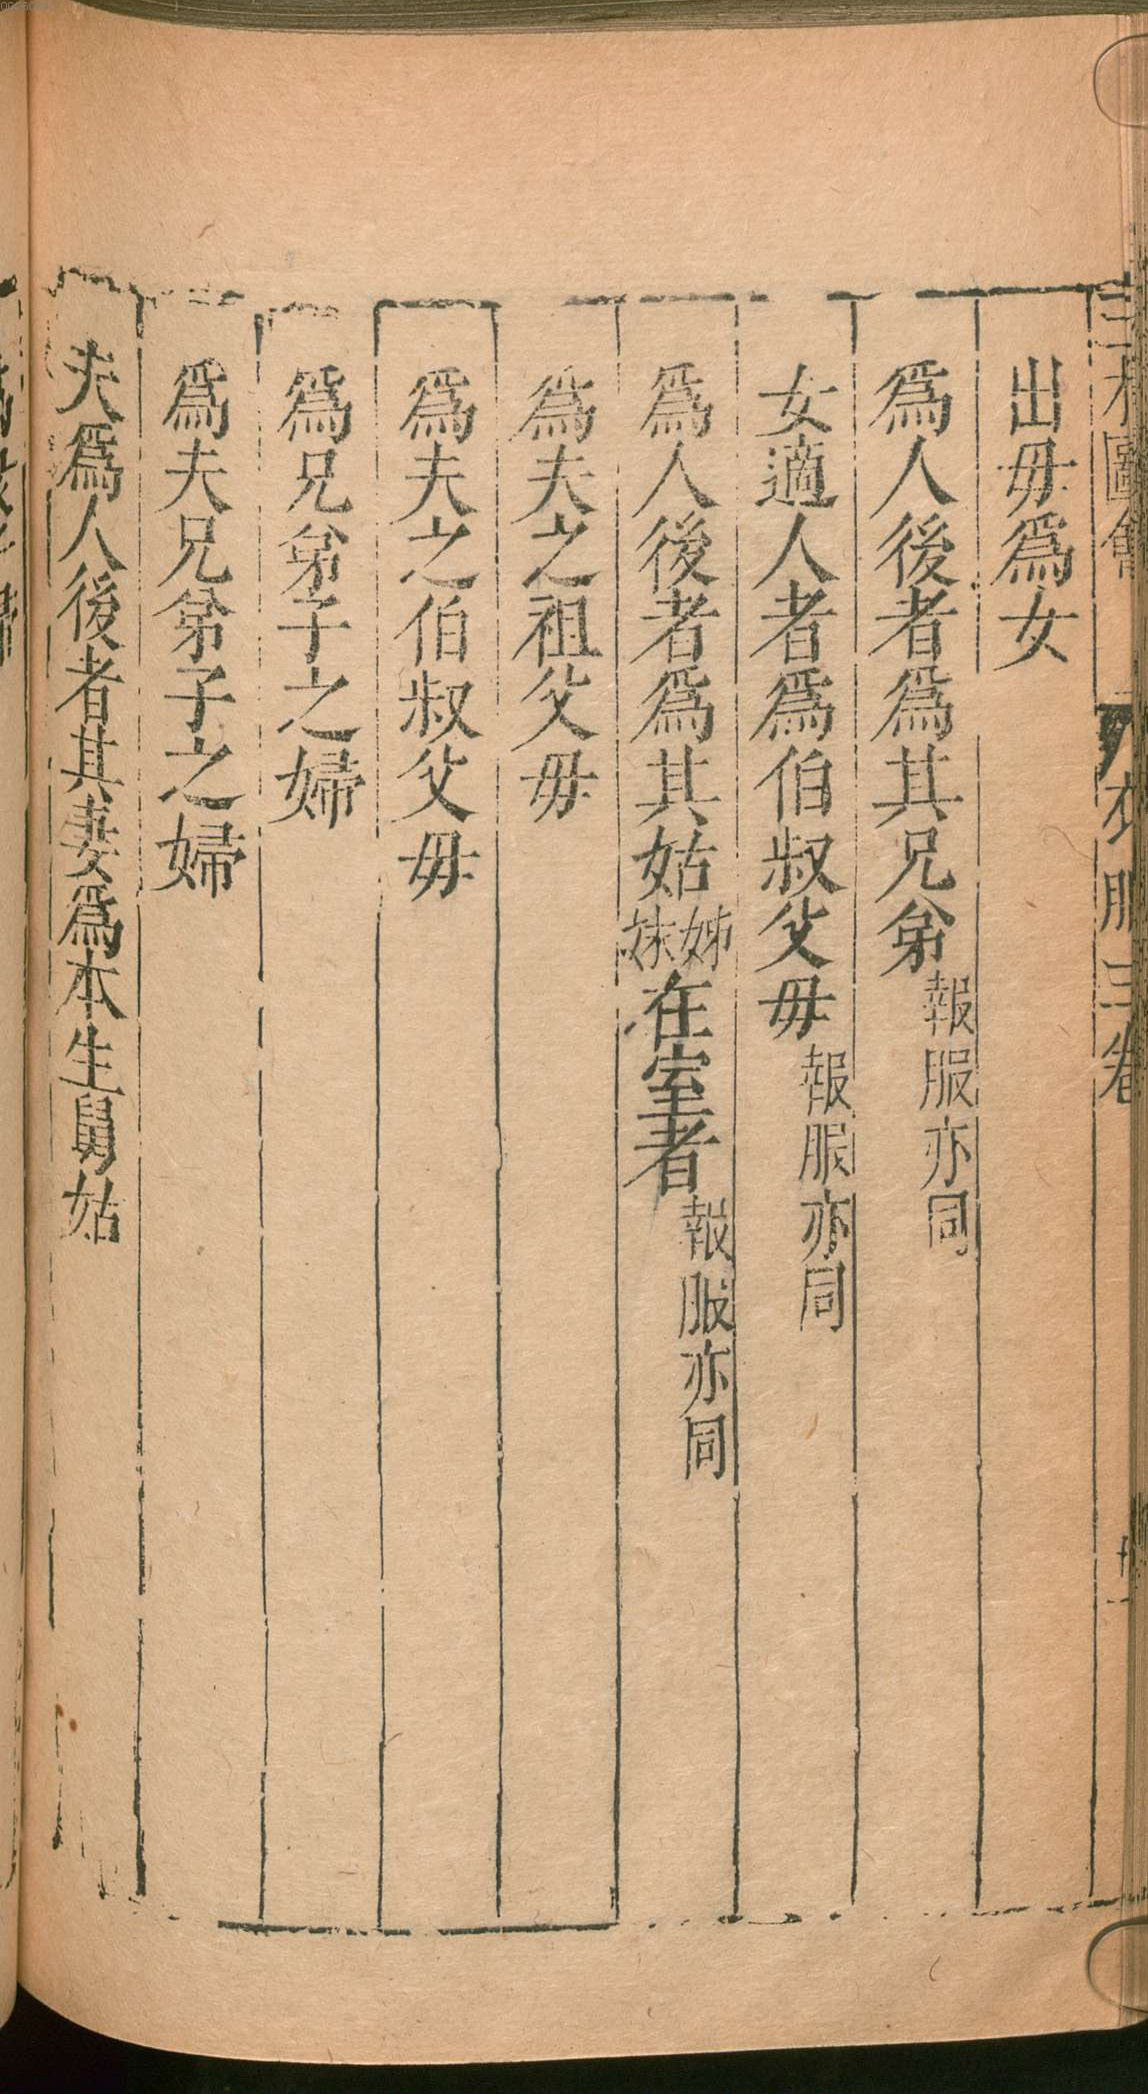 衣服三卷
出母爲女
爲人後者爲其兄弟報服亦同
女適人者爲伯叔父母報服亦同
爲人後者爲其姑姊妹在室者報服亦同
爲夫之祖父母
爲夫之伯叔父母
爲兄弟子之婦
爲夫兄弟子之婦
夫爲人後者其妻爲本生舅姑